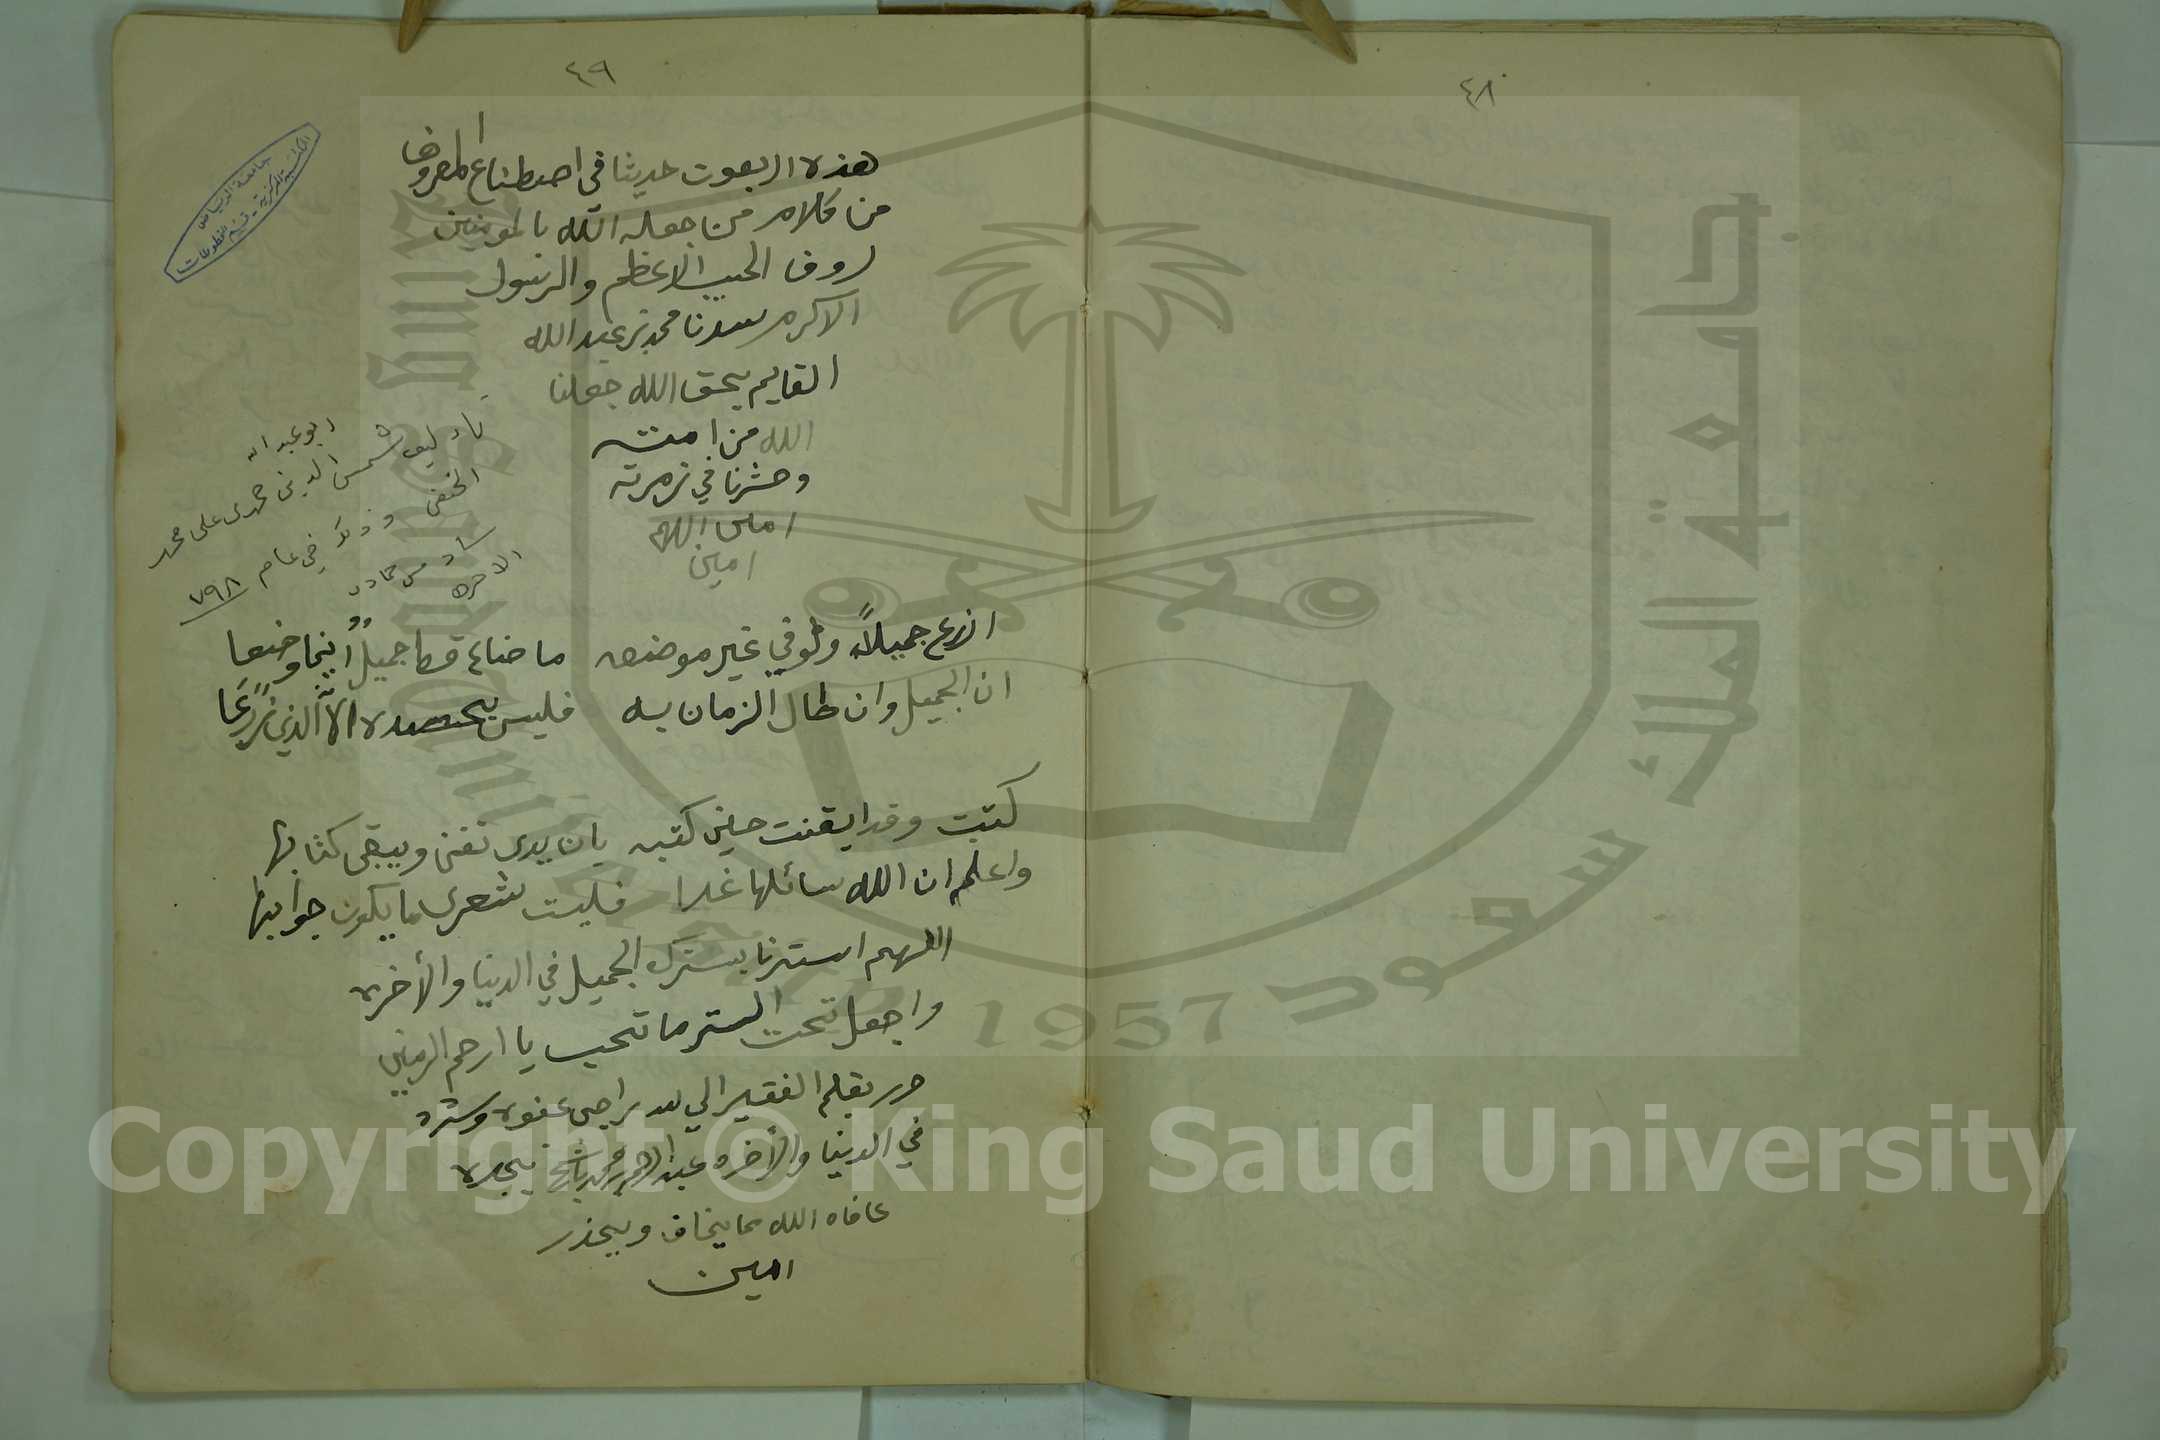 ٤٨
٤٩
هذه اربعون حديثا في اصطناع المعروف
من كلام من جعله الله بالمومنين
روف الحبيب الاعظم والرسول
الاكرم سيدنا محمد بن عبد الله
القايم بحق الله جعلنا
الله من امته
وحشرنا في زمرته
امين اللهم
امين
تاليف شمس الدين ابو عبد الله
محمد بن على محمد
الحنفى وذلك في عام ٧٩٨
سادس جماد
الاخره
ازرع جميلاً ولو في غير موضعه ما ضاع قط جميلٌ اينما وضعا
ان الجميل وان طال الزمان به فليس يحصده الا الذي زرعا
كتبت وقد ايقنت حين كتبه بان يدى تفنى ويبقى كتابها
واعلم ان الله سائلها غدا فليت شعرى ما يكون جوابها
اللهم استرنا بسترك الجميل في الدنيا والأخره
واجعل تحت الستر ما تحب يا ارحم الرحمين
حرر بقلم الفقير الي الله راجى عفوه وستره
في الدنيا والأخره عبد محمد بجده
عافاه الله مما يخاف ويحذر
امين
جامعة الرياض
المكتبة المركزية - قسم المخطوطات
جامعة الملك سعود
1957
King Saud University
Copyright © King Saud University